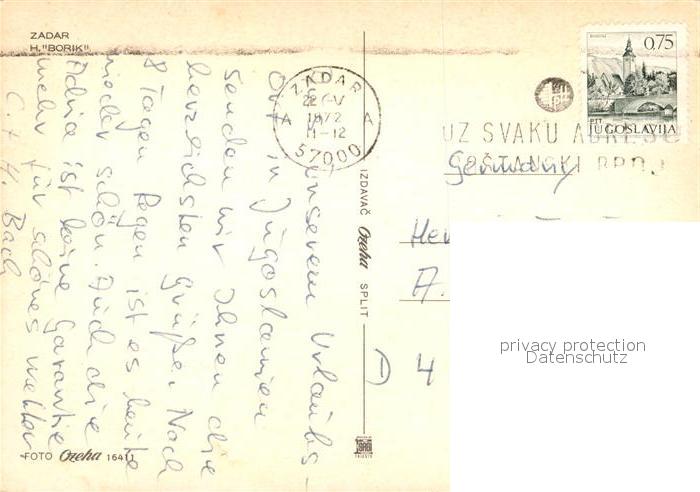 ZADAR
H. "BORIK"
unserem Urlaubs-
Ort in Jugoslawien
senden wir Ihnen die
herzlichsten Grüße. Nach
8 Tagen Regen ist es heute
wieder schön. Auch die
Adria ist keine Garantie
mehr für schönes Wetter
C. + H. Bach
FOTO Ozeha 16411
IZDAVAČ Ozeha SPLIT
ZADAR
A A
1972
11-12
57000
UZ SVAKU ADRESU
POŠTANSKI BROJ
0,75
PTT
JUGOSLAVIJA
Germany
A.
D 4
privacy protection
Datenschutz